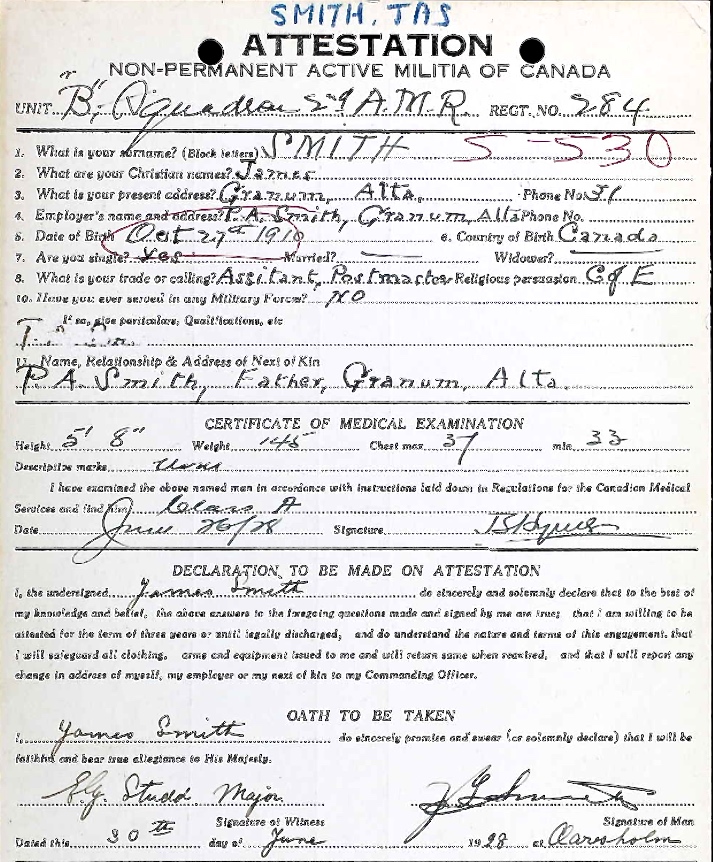 SMITH, JAS
ATTESTATION
NON-PERMANENT ACTIVE MILITIA OF CANADA
UNIT "B" Squadron 29 A.M.R. REGT. NO. 284
1. What is your surname? (Block letters) SMITH S-530
2. What are your Christian names? James
3. What is your present address? Granum, Alta. Phone No. 31
4. Employer's name and address? P.A. Smith, Granum, Alta Phone No.
5. Date of Birth Oct 27th 1910 6. Country of Birth Canada
7. Are you single? Yes Married? — Widower? —
8. What is your trade or calling? Assitant, Postmaster Religious persuasion C of E
10. Have you ever served in any Military Force? NO
If so, give particulars, Qualifications, etc
11. Name, Relationship & Address of Next of Kin
P. A. Smith, Father, Granum, Alta.
CERTIFICATE OF MEDICAL EXAMINATION
Height 5' 8" Weight 145 Chest max 37 min. 33
Descriptive marks
I have examined the above named man in accordance with instructions laid down in Regulations for the Canadian Medical
Services and find him Class A
Date June 26/28 Signature
DECLARATION TO BE MADE ON ATTESTATION
I, the undersigned James Smith do sincerely and solemnly declare that to the best of
my knowledge and belief, the above answers to the foregoing questions made and signed by me are true; that I am willing to be
attested for the term of three years or until legally discharged, and do understand the nature and terms of this engagement, that
I will safeguard all clothing, arms and equipment issued to me and will return same when required, and that I will report any
change in address of myself, my employer or my next of kin to my Commanding Officer.
OATH TO BE TAKEN
I, James Smith do sincerely promise and swear (or solemnly declare) that I will be
faithful and bear true allegiance to His Majesty.
E.G. Studd Major
Signature of Witness Signature of Man
Dated this 30th day of June 1928 at Claresholm